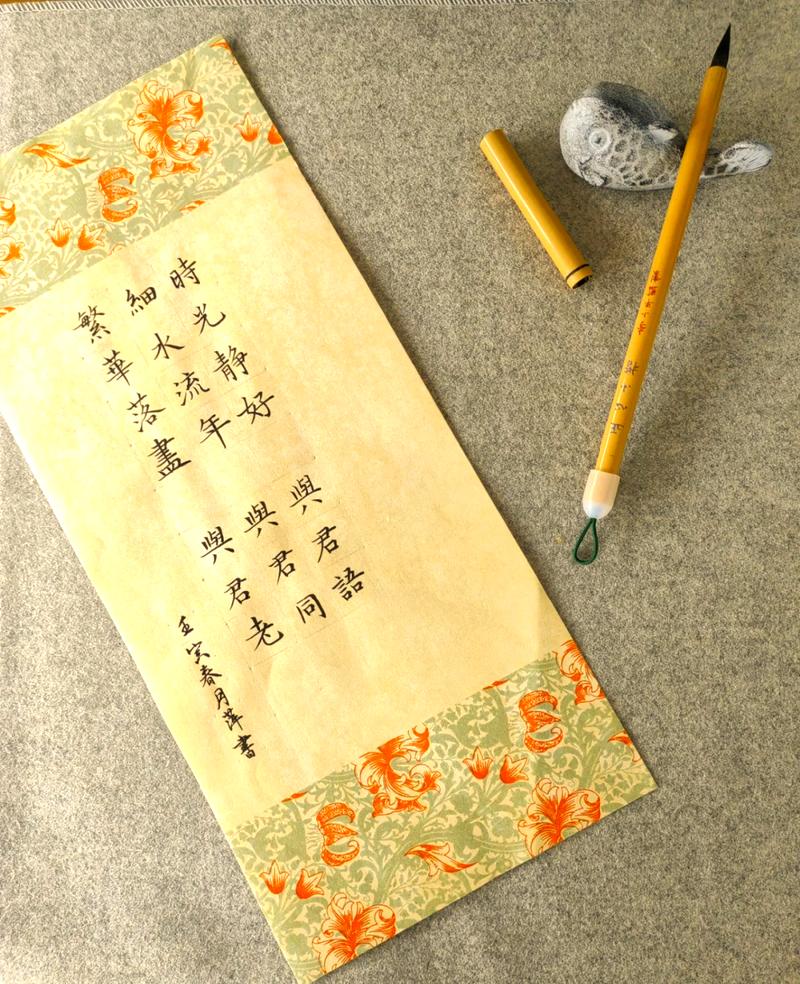 時光静好 與君語
細水流年 與君同
繁華落盡 與君老
壬寅春月萍書